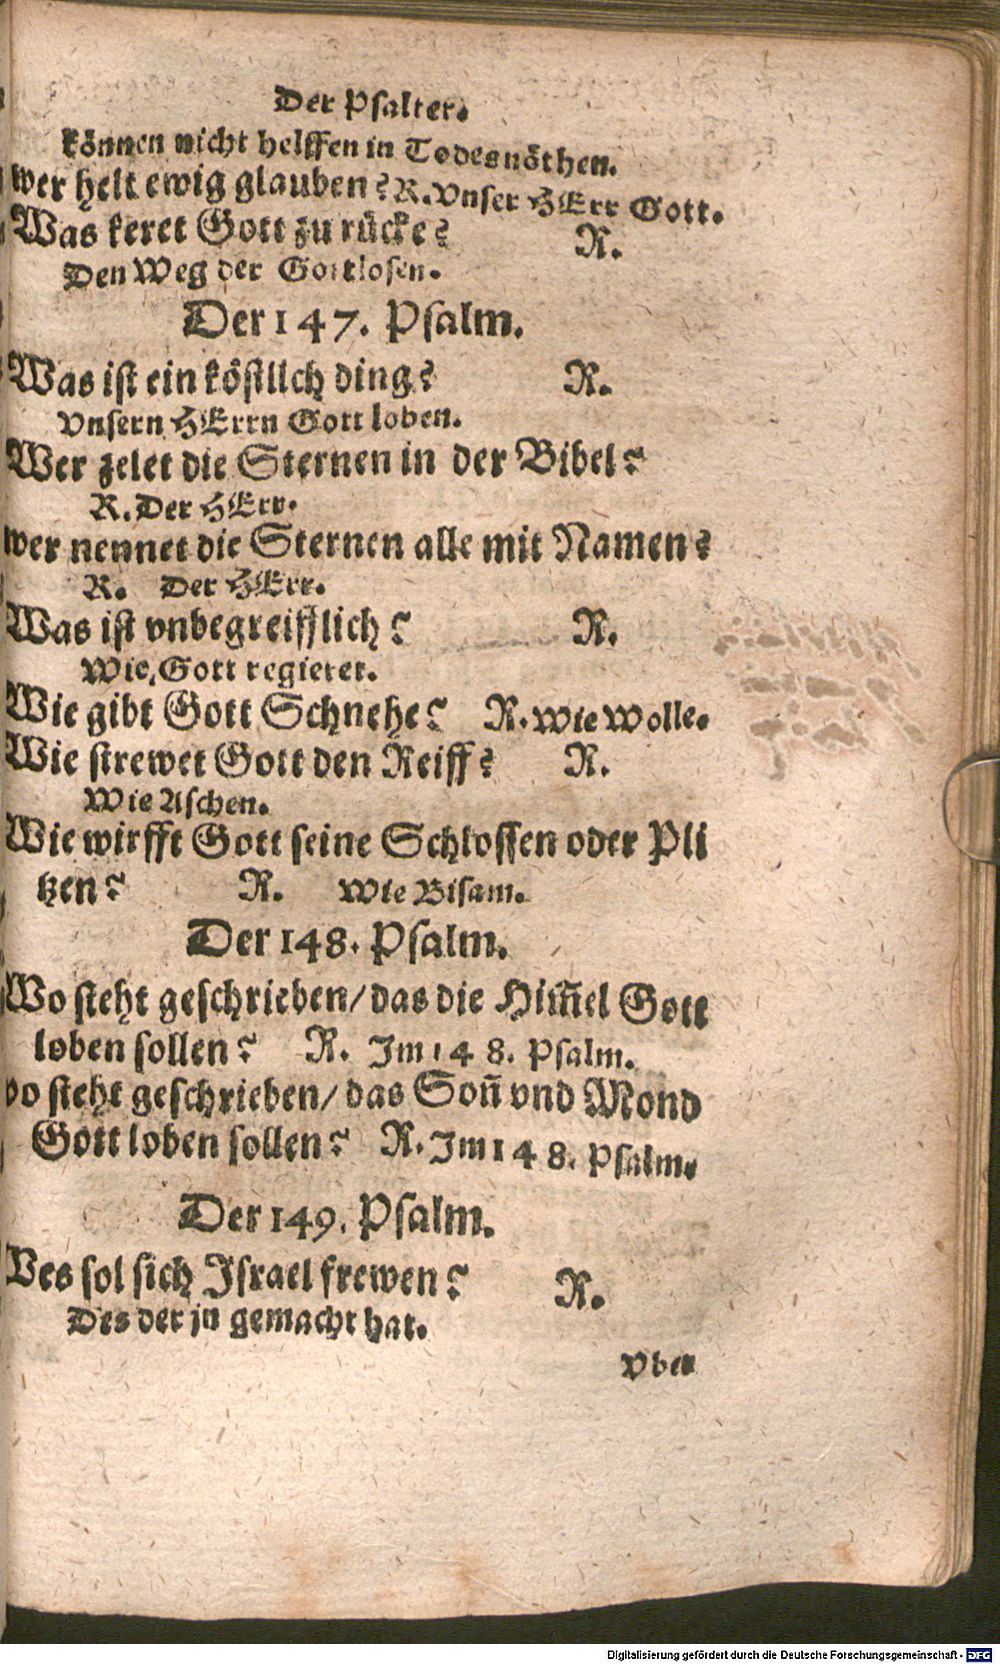 Der Psalter.
können nicht helffen in Todesnöthen.
wer helt ewig glauben? R. Vnser HErr Gott.
Was keret Gott zu rücke? R.
Den Weg der Gottlosen.
Der 147. Psalm.
Was ist ein köstlich ding? R.
Vnsern HErrn Gott loben.
Wer zelet die Sternen in der Bibel?
R. Der HErr.
wer nennet die Sternen alle mit Namen?
R. Der HErr.
Was ist vnbegreifflich? R.
Wie, Gott regieret.
Wie gibt Gott Schnehe? R. Wie Wolle.
Wie strewet Gott den Reiff? R.
Wie Aschen.
Wie wirfft Gott seine Schlossen oder Pli
tzen? R. Wie Bisam.
Der 148. Psalm.
Wo steht geschrieben/ das die Him̃el Gott
loben sollen? R. Im 148. Psalm.
wo steht geschrieben/ das Soñ vnd Mond
Gott loben sollen? R. Im 148. Psalm.
Der 149. Psalm.
Ves sol sich Israel frewen? R.
Des der jn gemacht hat.
Vber
Digitalisierung gefördert durch die Deutsche Forschungsgemeinschaft - DFG